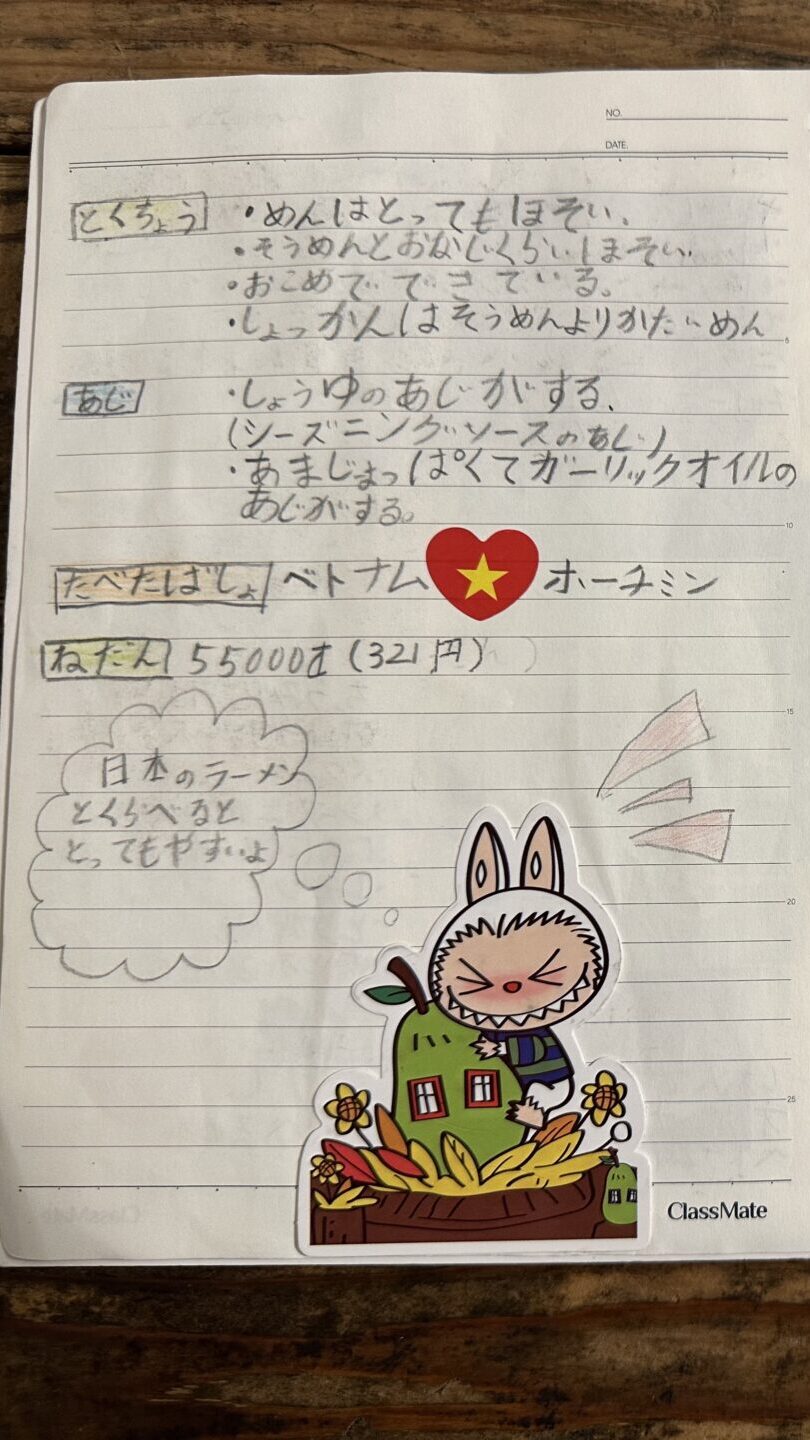 NO.
DATE.
とくちょう ・めんはとってもほそい.
・そうめんとおなじくらいほそい
・おこめでできている。
・しょっかんはそうめんよりかたいめん
5
あじ ・しょうゆのあじがする.
(シーズニングソースのあじ)
・あまじょっぱくてガーリックオイルの
あじがする。
10
たべたばしょ ベトナム ホーチミン
ねだん 55000đ (321円)
15
日本のラーメン
とくらべると
とってもやすいよ
20
25
ClassMate